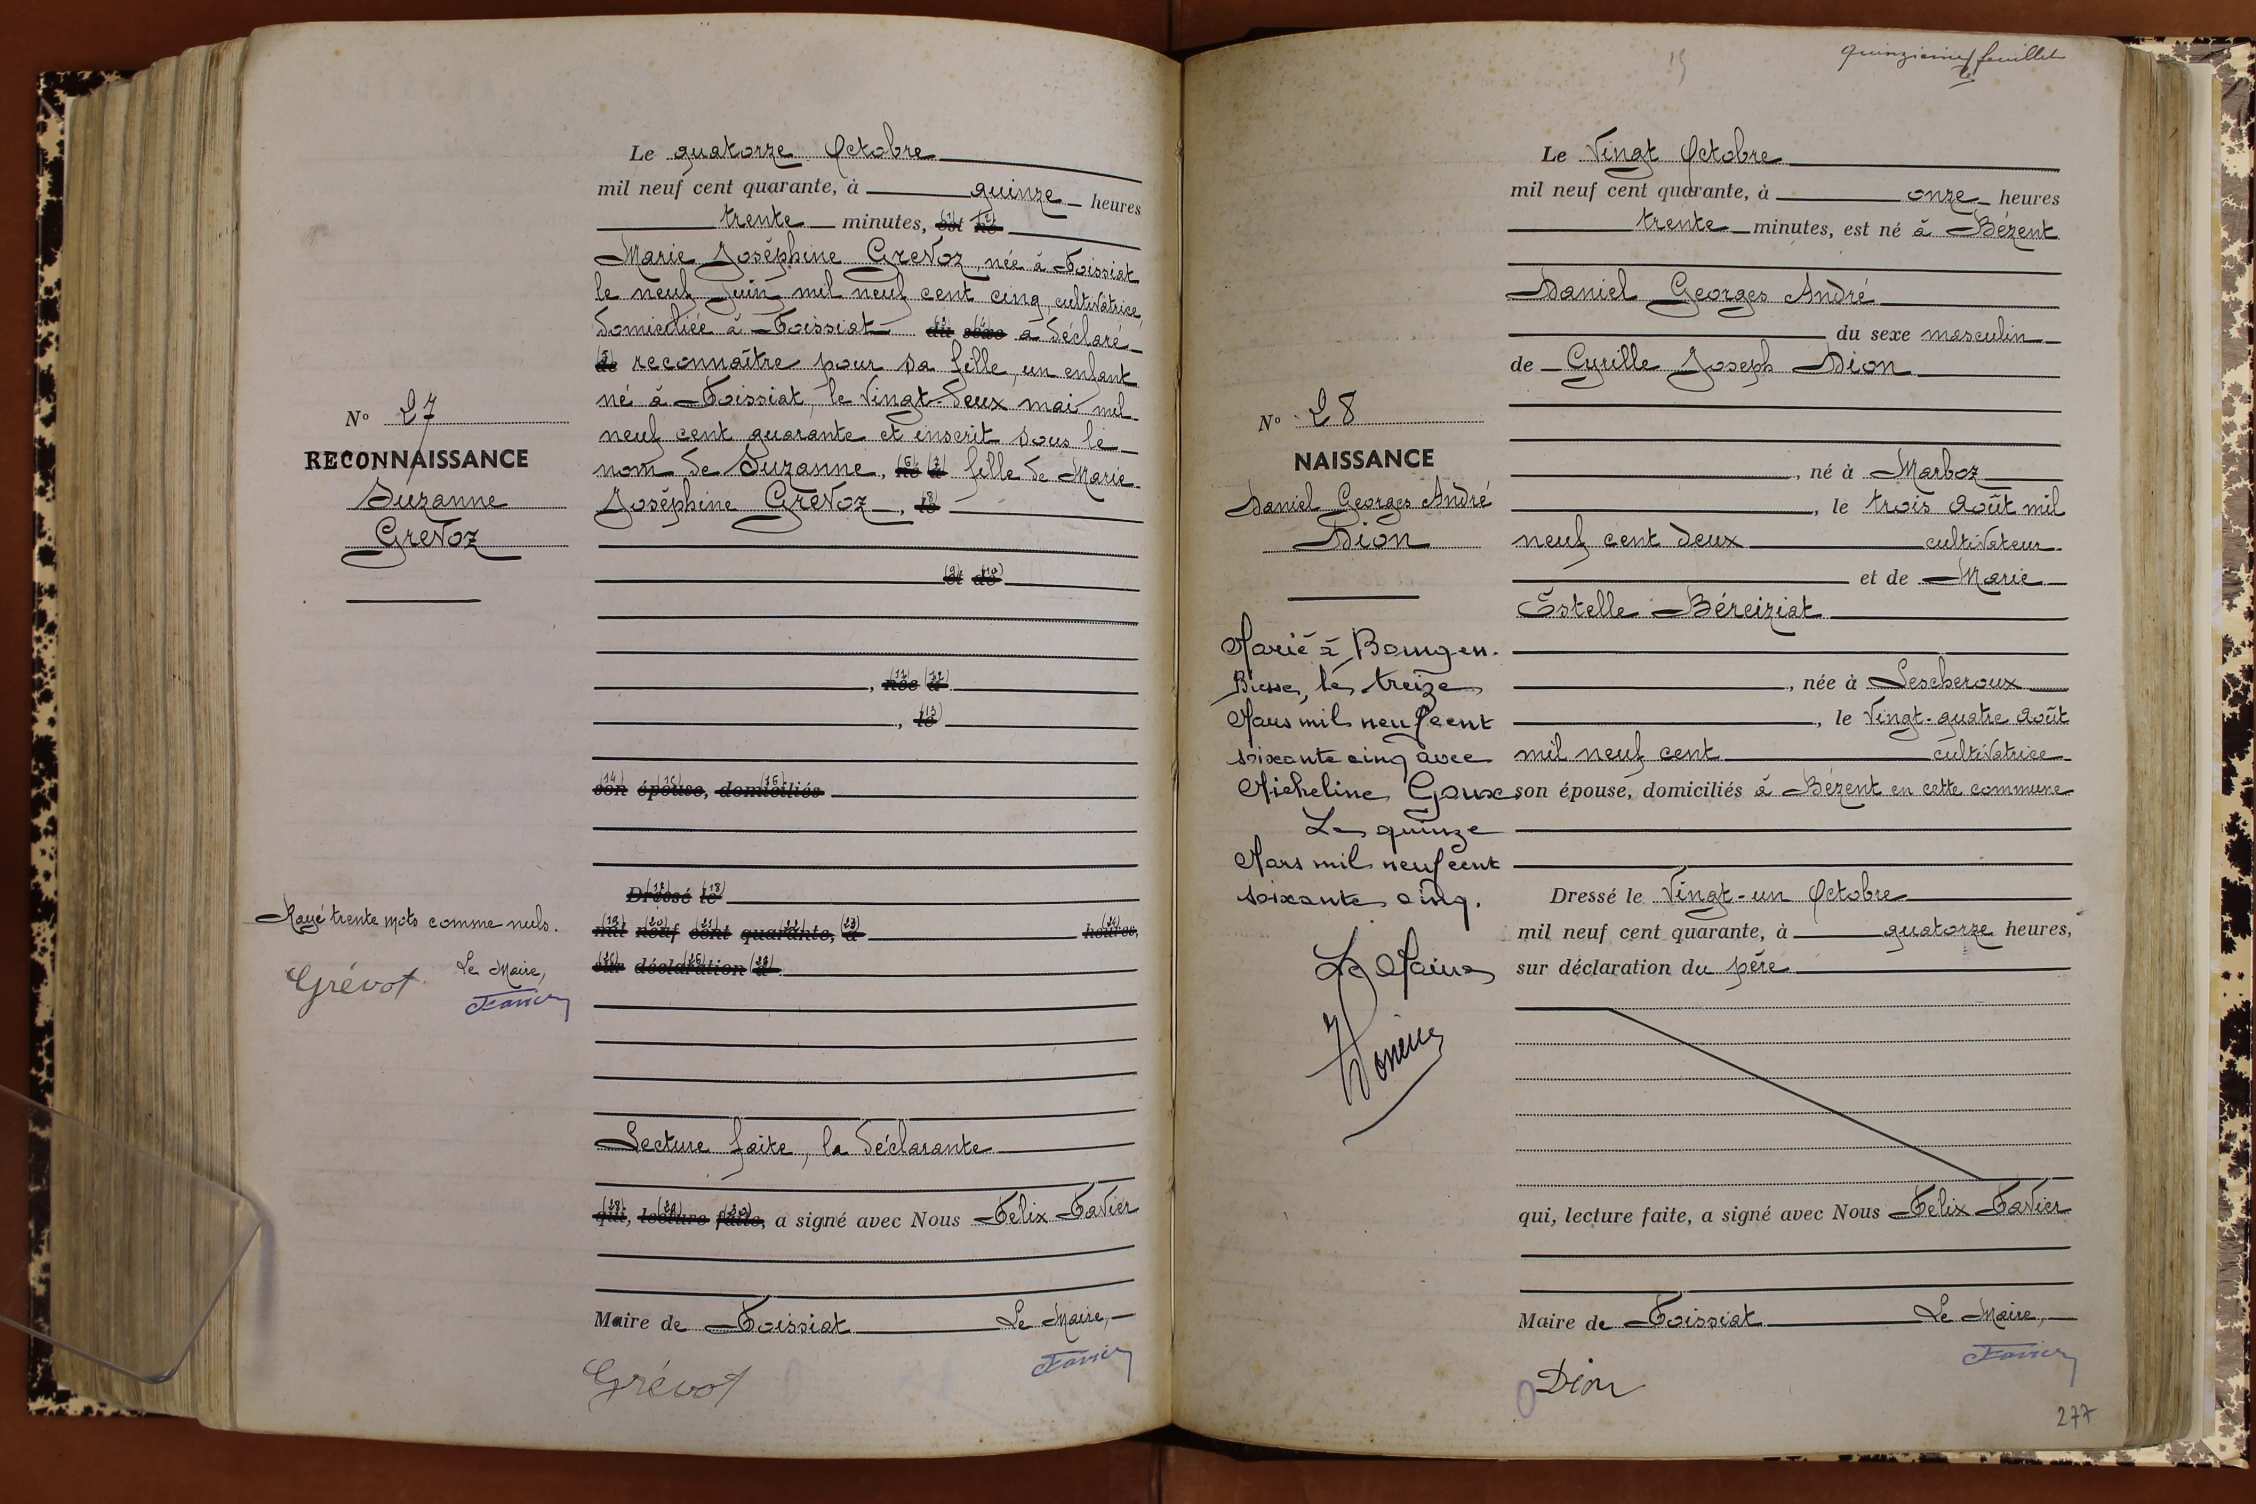 Le quatorze Octobre
mil neuf cent quarante, à quinze heures
trente minutes, (1) est (2) né
Marie Joséphine Grevoz, née à Foissiat
le neuf Juin mil neuf cent cinq, cultivatrice,
domiciliée à Foissiat (3) du (4) sexe a déclaré
(5) de reconnaître pour sa fille, un enfant
né à Foissiat, le vingt-deux mai mil
neuf cent quarante et inscrit sous le
nom de Suzanne, (6) né (7) à fille de Marie
Joséphine Grevoz, (8) le
(9) et (10) de
, (11) née (12) à
, (13) le
(14) son (15) épouse, (16) domiciliés
(17) Dressé (18) le
(19) mil (20) neuf (21) cent (22) quarante, (23) à (24) heures,
(25) sur (26) déclaration
Lecture faite, la déclarante
(28) qui, (29) lecture (30) faite, a signé avec Nous Félix Favier
Maire de Foissiat Le Maire,
Grévoz Favier
N° 27
RECONNAISSANCE
Suzanne
Grevoz
Rayé trente mots comme nuls.
Grévoz Le Maire,
Favier
15 quinzième feuillet
Le Vingt Octobre
mil neuf cent quarante, à onze heures
trente minutes, est né à Bézent
Daniel Georges André
du sexe masculin
de Cyrille Joseph Dion
, né à Marboz
, le trois Août mil
neuf cent deux cultivateur
et de Marie
Estelle Béreiziat
, née à Lescheroux
, le Vingt-quatre Août
mil neuf cent cultivatrice
son épouse, domiciliés à Bézent en cette commune
Dressé le Vingt-un Octobre
mil neuf cent quarante, à quatorze heures,
sur déclaration du père
qui, lecture faite, a signé avec Nous Félix Favier
Maire de Foissiat Le Maire,
Dion Favier
277
N° 28
NAISSANCE
Daniel Georges André
Dion
Marié à Bourg en
Bresse, le treize
Mars mil neuf cent
soixante cinq avec
Micheline Goux
Le quinze
Mars mil neuf cent
soixante cinq.
Le Maire